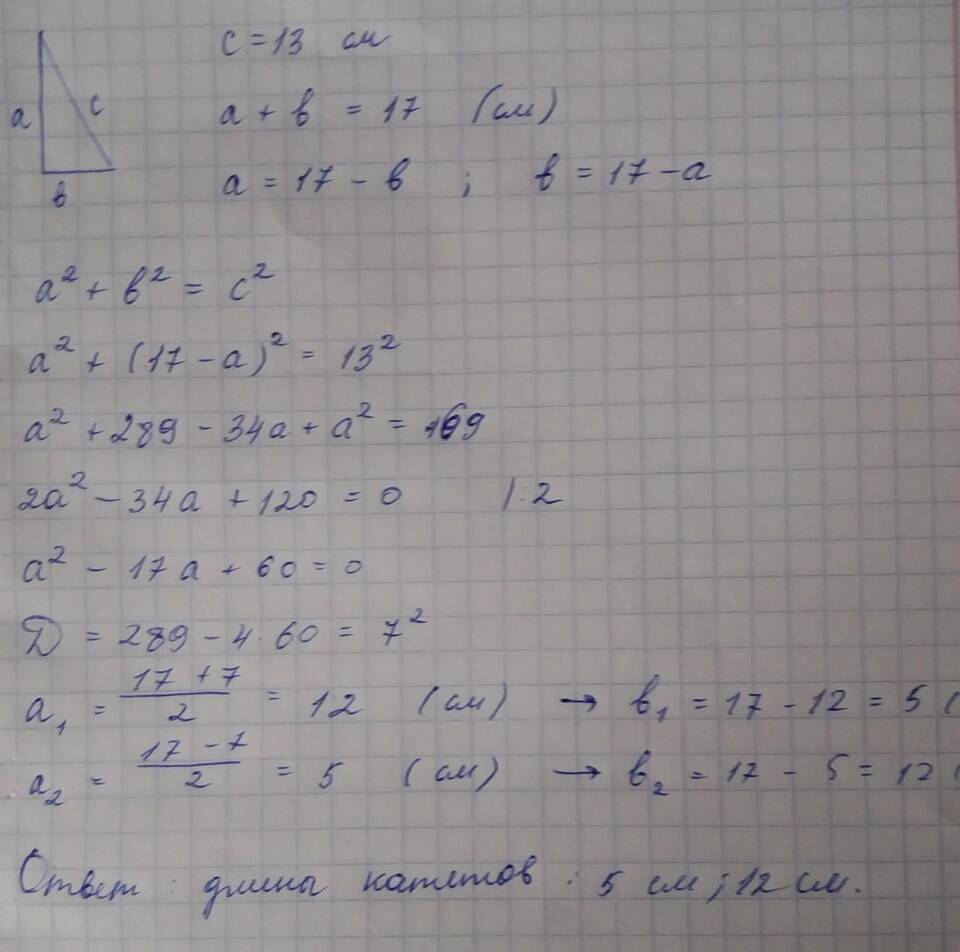 a
c
в
c = 13 см
a + в = 17 (см)
a = 17 - в ; в = 17 - a
a² + в² = c²
a² + (17 - a)² = 13²
a² + 289 - 34a + a² = 169
2a² - 34a + 120 = 0 |:2
a² - 17a + 60 = 0
D = 289 - 4·60 = 7²
a₁ = (17 + 7)/2 = 12 (см) → в₁ = 17 - 12 = 5 (
a₂ = (17 - 7)/2 = 5 (см) → в₂ = 17 - 5 = 12 (
Ответ: длины катетов: 5 см; 12 см.